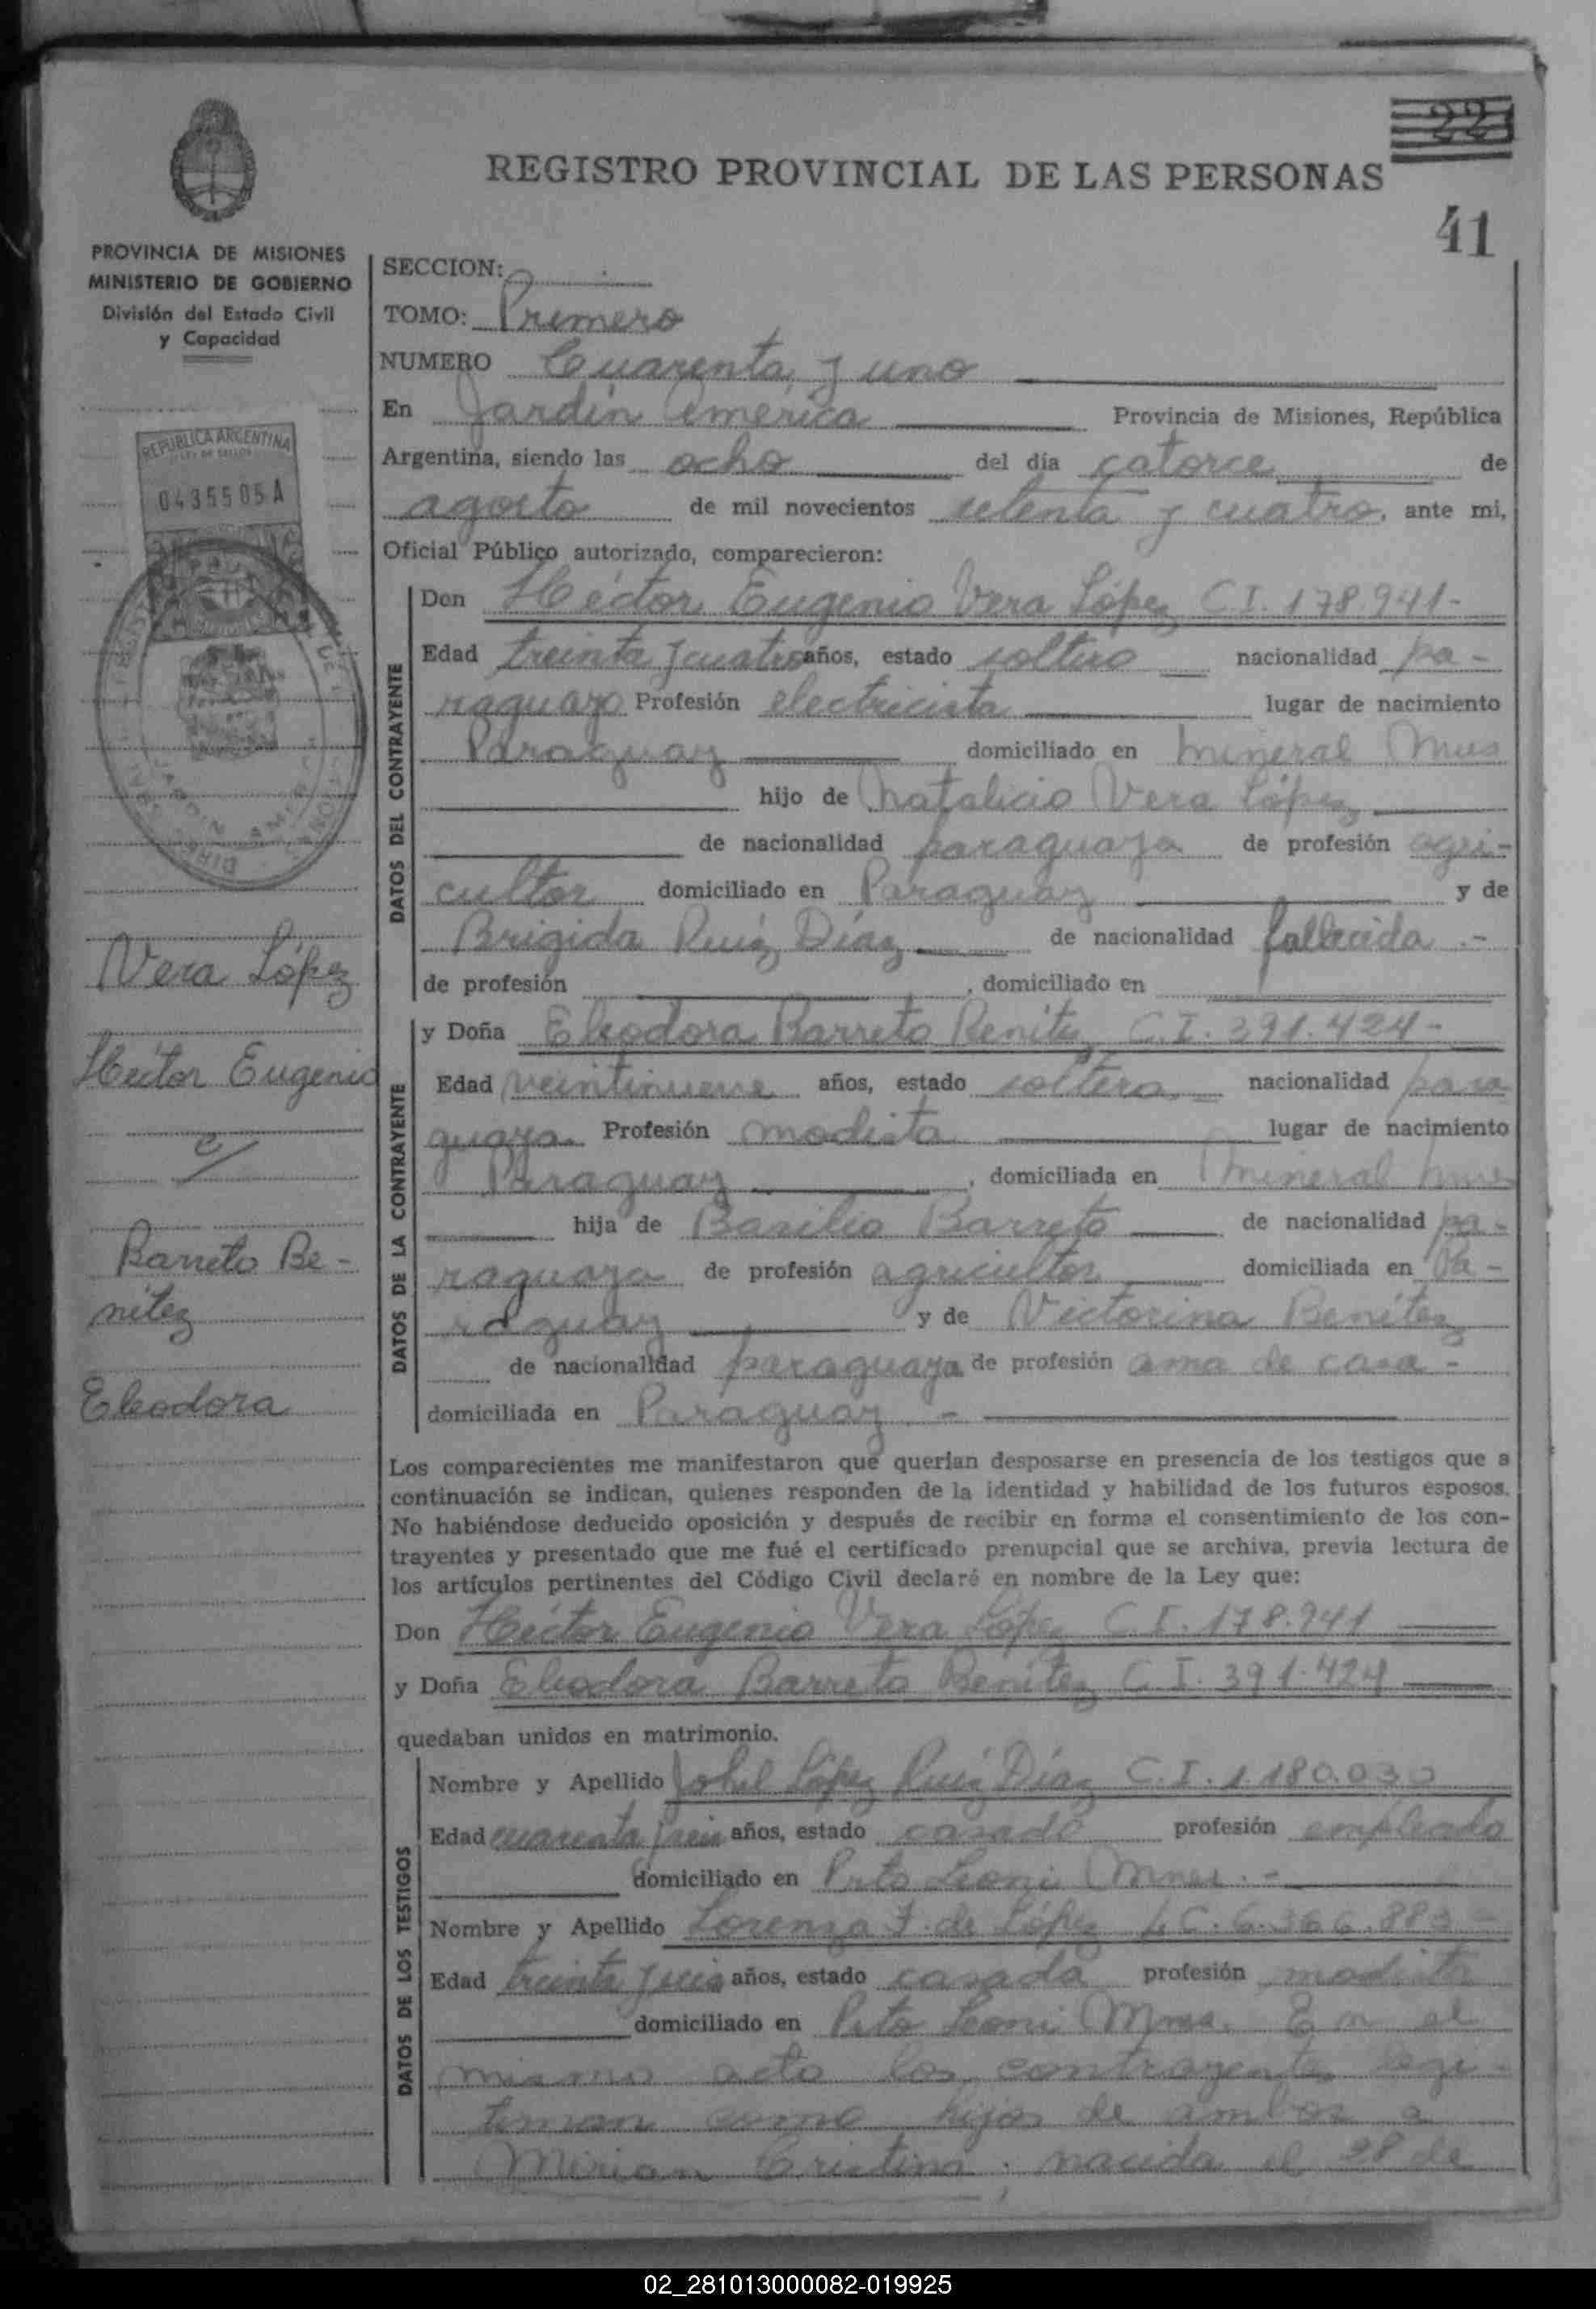 221
REGISTRO PROVINCIAL DE LAS PERSONAS
41
PROVINCIA DE MISIONES
MINISTERIO DE GOBIERNO
División del Estado Civil
y Capacidad
REPUBLICA ARGENTINA
LEY DE SELLOS
0435505 A
Vera López
Héctor Eugenio
c/
Barreto Be-
nítez
Eleodora
SECCION:
TOMO: Primero
NUMERO Cuarenta y uno
En Jardín América Provincia de Misiones, República
Argentina, siendo las ocho del día catorce de
agosto de mil novecientos setenta y cuatro, ante mi,
Oficial Público autorizado, comparecieron:
DATOS DEL CONTRAYENTE
Don Héctor Eugenio Vera López C.I. 178.941-
Edad treinta y cuatro años, estado soltero nacionalidad pa-
raguayo Profesión electricista lugar de nacimiento
Paraguay domiciliado en Mineral Mnes
hijo de Natalicio Vera López
de nacionalidad paraguaya de profesión agri-
cultor domiciliado en Paraguay y de
Brigida Ruíz Díaz de nacionalidad fallecida.-
de profesión , domiciliado en
DATOS DE LA CONTRAYENTE
y Doña Eleodora Barreto Benítez C.I. 391.424-
Edad veintinueve años, estado soltera nacionalidad para
guaya. Profesión modista lugar de nacimiento
Paraguay , domiciliada en Mineral Mnes
hija de Basilio Barreto de nacionalidad pa-
raguaya de profesión agricultor domiciliada en Pa-
raguay y de Victorina Benítez
de nacionalidad paraguaya de profesión ama de casa-
domiciliada en Paraguay.-
Los comparecientes me manifestaron que querían desposarse en presencia de los testigos que a
continuación se indican, quienes responden de la identidad y habilidad de los futuros esposos.
No habiéndose deducido oposición y después de recibir en forma el consentimiento de los con-
trayentes y presentado que me fué el certificado prenupcial que se archiva, previa lectura de
los artículos pertinentes del Código Civil declaré en nombre de la Ley que:
Don Héctor Eugenio Vera López C.I. 178.941
y Doña Eleodora Barreto Benítez C.I. 391.424
quedaban unidos en matrimonio.
DATOS DE LOS TESTIGOS
Nombre y Apellido López Ruíz Díaz C.I. 1.180.030
Edad cuarenta y seis años, estado casado profesión empleado
domiciliado en Pto Leoni Mnes.-
Nombre y Apellido Lorenza F. de López L.C. 6.366.883
Edad treinta y seis años, estado casada profesión modista
domiciliado en Pto Leoni Mnes. En el
mismo acto los contrayentes legi-
timan como hijos de ambos a
Mirian Cristina, nacida el 28 de
02_281013000082-019925